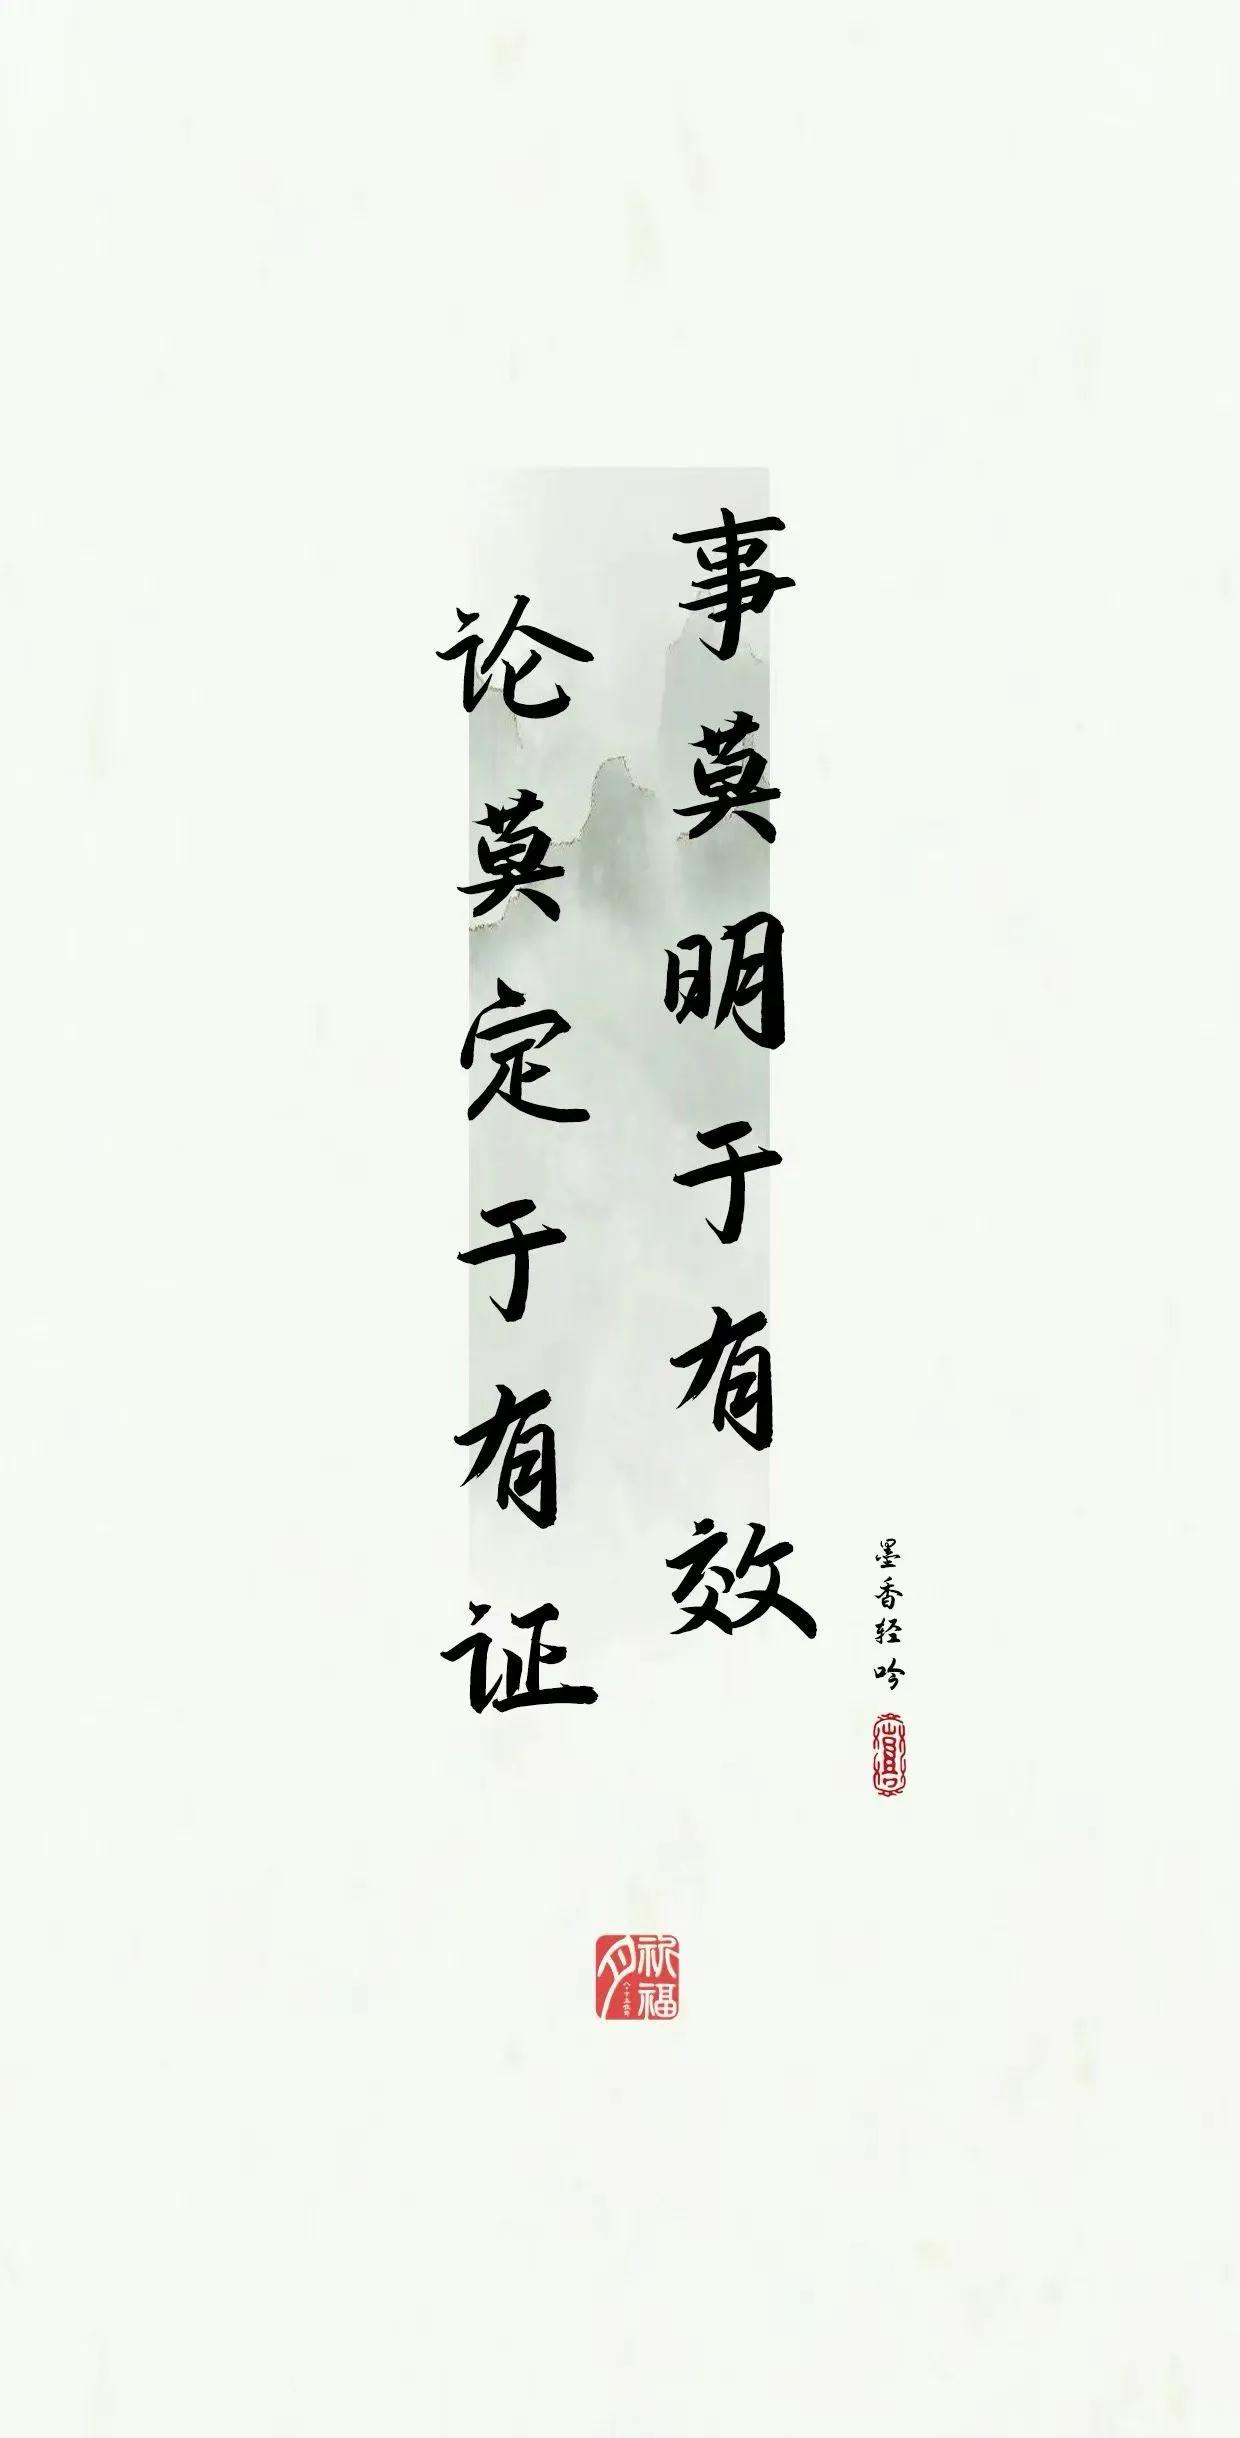 事莫明于有效
论莫定于有证
墨香轻吟
祈福